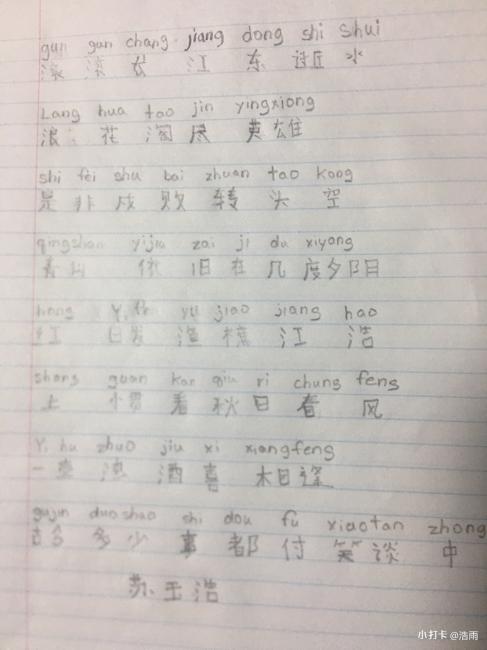 gun gun chang jiang dong shi shui
滚 滚 长 江 东 逝 水
Lang hua tao jin yingxiong
浪 花 淘 尽 英雄
shi fei shu bai zhuan tao kong
是 非 成 败 转 头 空
qingshan yijiu zai ji du xiyang
青山 依 旧 在 几 度夕阳
hong Y, fa yu jiao jiang hao
红 白发 渔 樵 江 浩
shang guan kan qiu ri chung feng
上 惯 看 秋 日 春 风
Y, hu zhuo jiu xi xiangfeng
一 壶 浊 酒 喜 相逢
gujin duoshao shi dou fu xiaotan zhong
古今 多 少 事 都 付 笑 谈 中
苏 玉 浩
小打卡 @浩雨